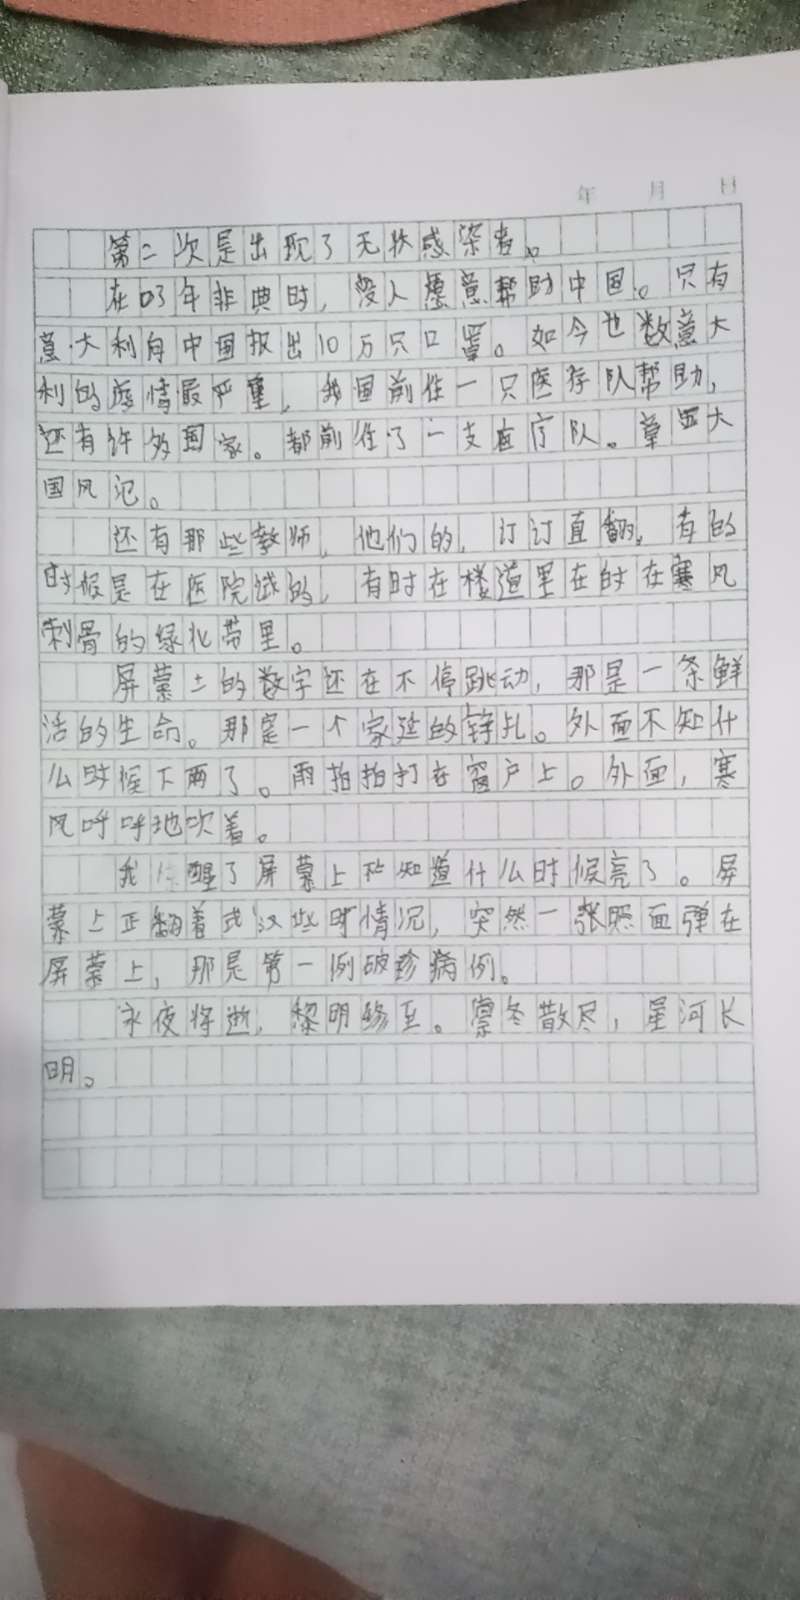 年 月 日
第二次是出现了无状感染者。
在03年非典时,没人愿意帮助中国。只有
意大利向中国报出10万只口罩。如今也数意大
利的疫情最严重,我国前往一只医疗队帮助,
还有许多国家。都前往了一支医疗队。章显大
国风记。
还有那些教师,他们的,订订直翻,有的
时候是在医院试的,有时在楼道里在时在寒风
刺骨的绿化带里。
屏幕上的数字还在不停跳动,那是一条鲜
活的生命。那是一个家庭的铮扎。外面不知什
么时候下雨了。雨拍拍打在窗户上。外面,寒
风呼呼地吹着。
我 醒了屏幕上不知道什么时候亮了。屏
幕上正翻着武汉些时情况,突然一张照面弹在
屏幕上,那是第一例破诊病例。
永夜将逝,黎明终至。凛冬散尽,星河长
明。